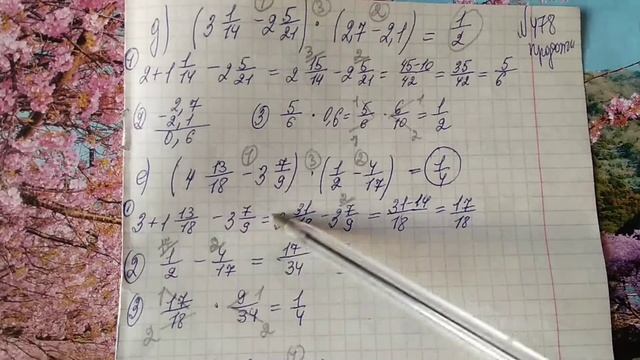 д) (3 1/14 - 2 5/21) · (2,7 - 2,1) = 1/2
N478
① 2 + 1 1/14 - 2 5/21 = 2 15/14 - 2 5/21 = 45-10/42 = 35/42 = 5/6
② - 2,7
2,1
0,6
③ 5/6 · 0,6 = 5/6 · 6/10 = 1/2
е) (4 13/18 - 3 7/9) · (1/2 - 4/17) = 1/4
① 3 + 1 13/18 - 3 7/9 = 31/18 - 3 7/9 = 31-14/18 = 17/18
② 1/2 - 4/17 = 17/34
③ 17/18 · 9/34 = 1/4